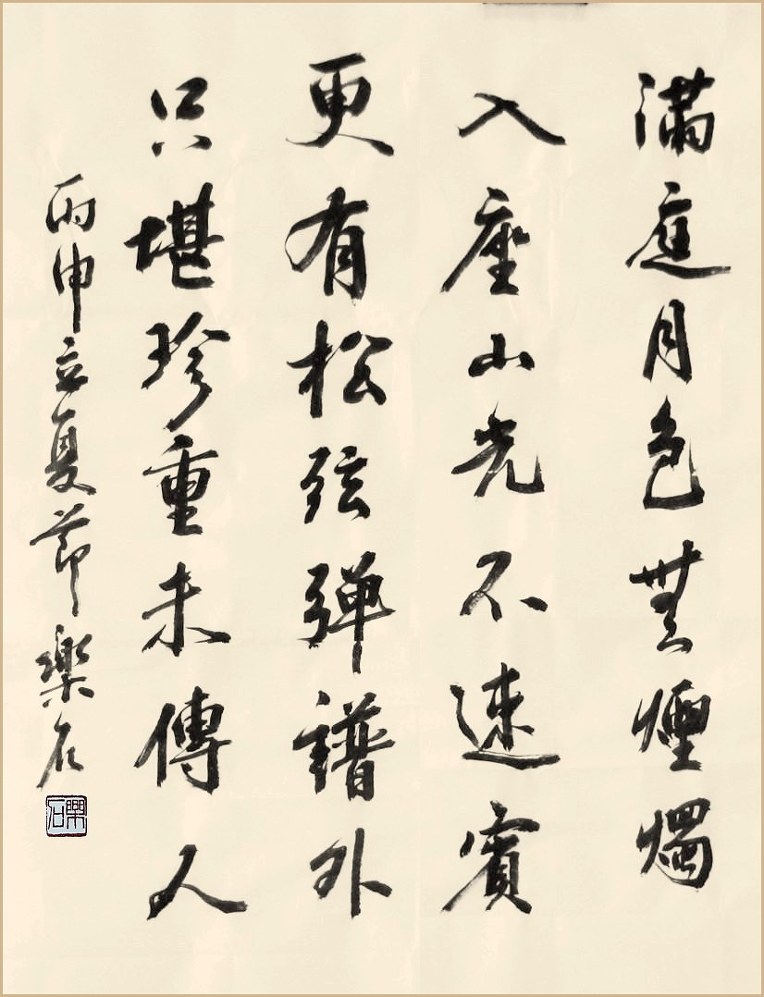 滿庭月色無煙燭
入座山光不速賓
更有松弦彈譜外
只堪珍重未傳人
丙申立夏節樂石
樂石